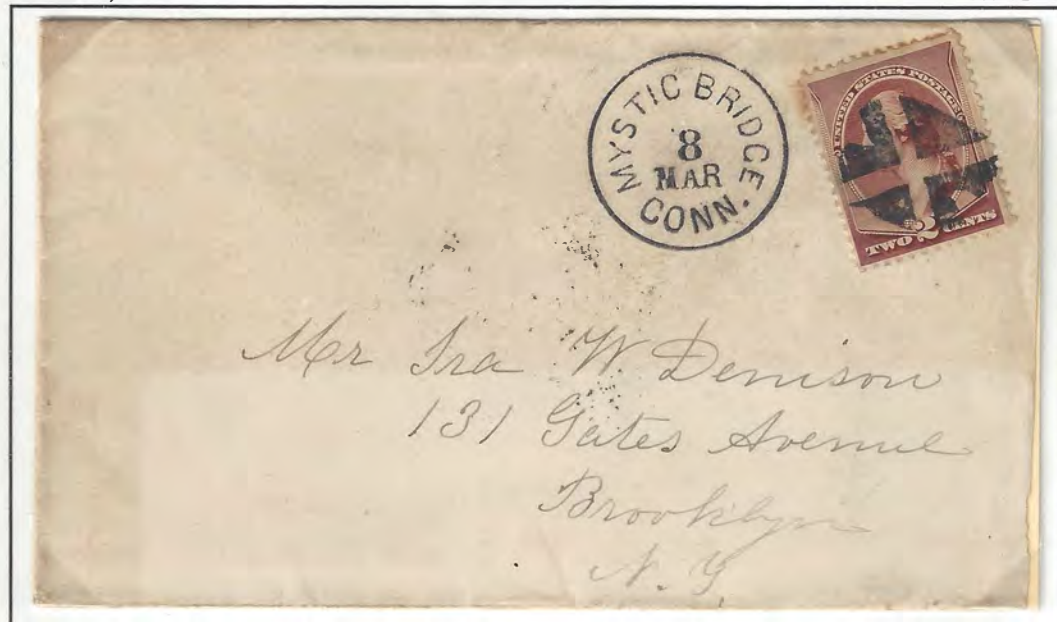 MYSTIC BRIDGE
8
MAR
CONN.
UNITED STATES POSTAGE
TWO 2 CENTS
Mr Ira W Denison
131 Gates Avenue
Brooklyn
N. Y.